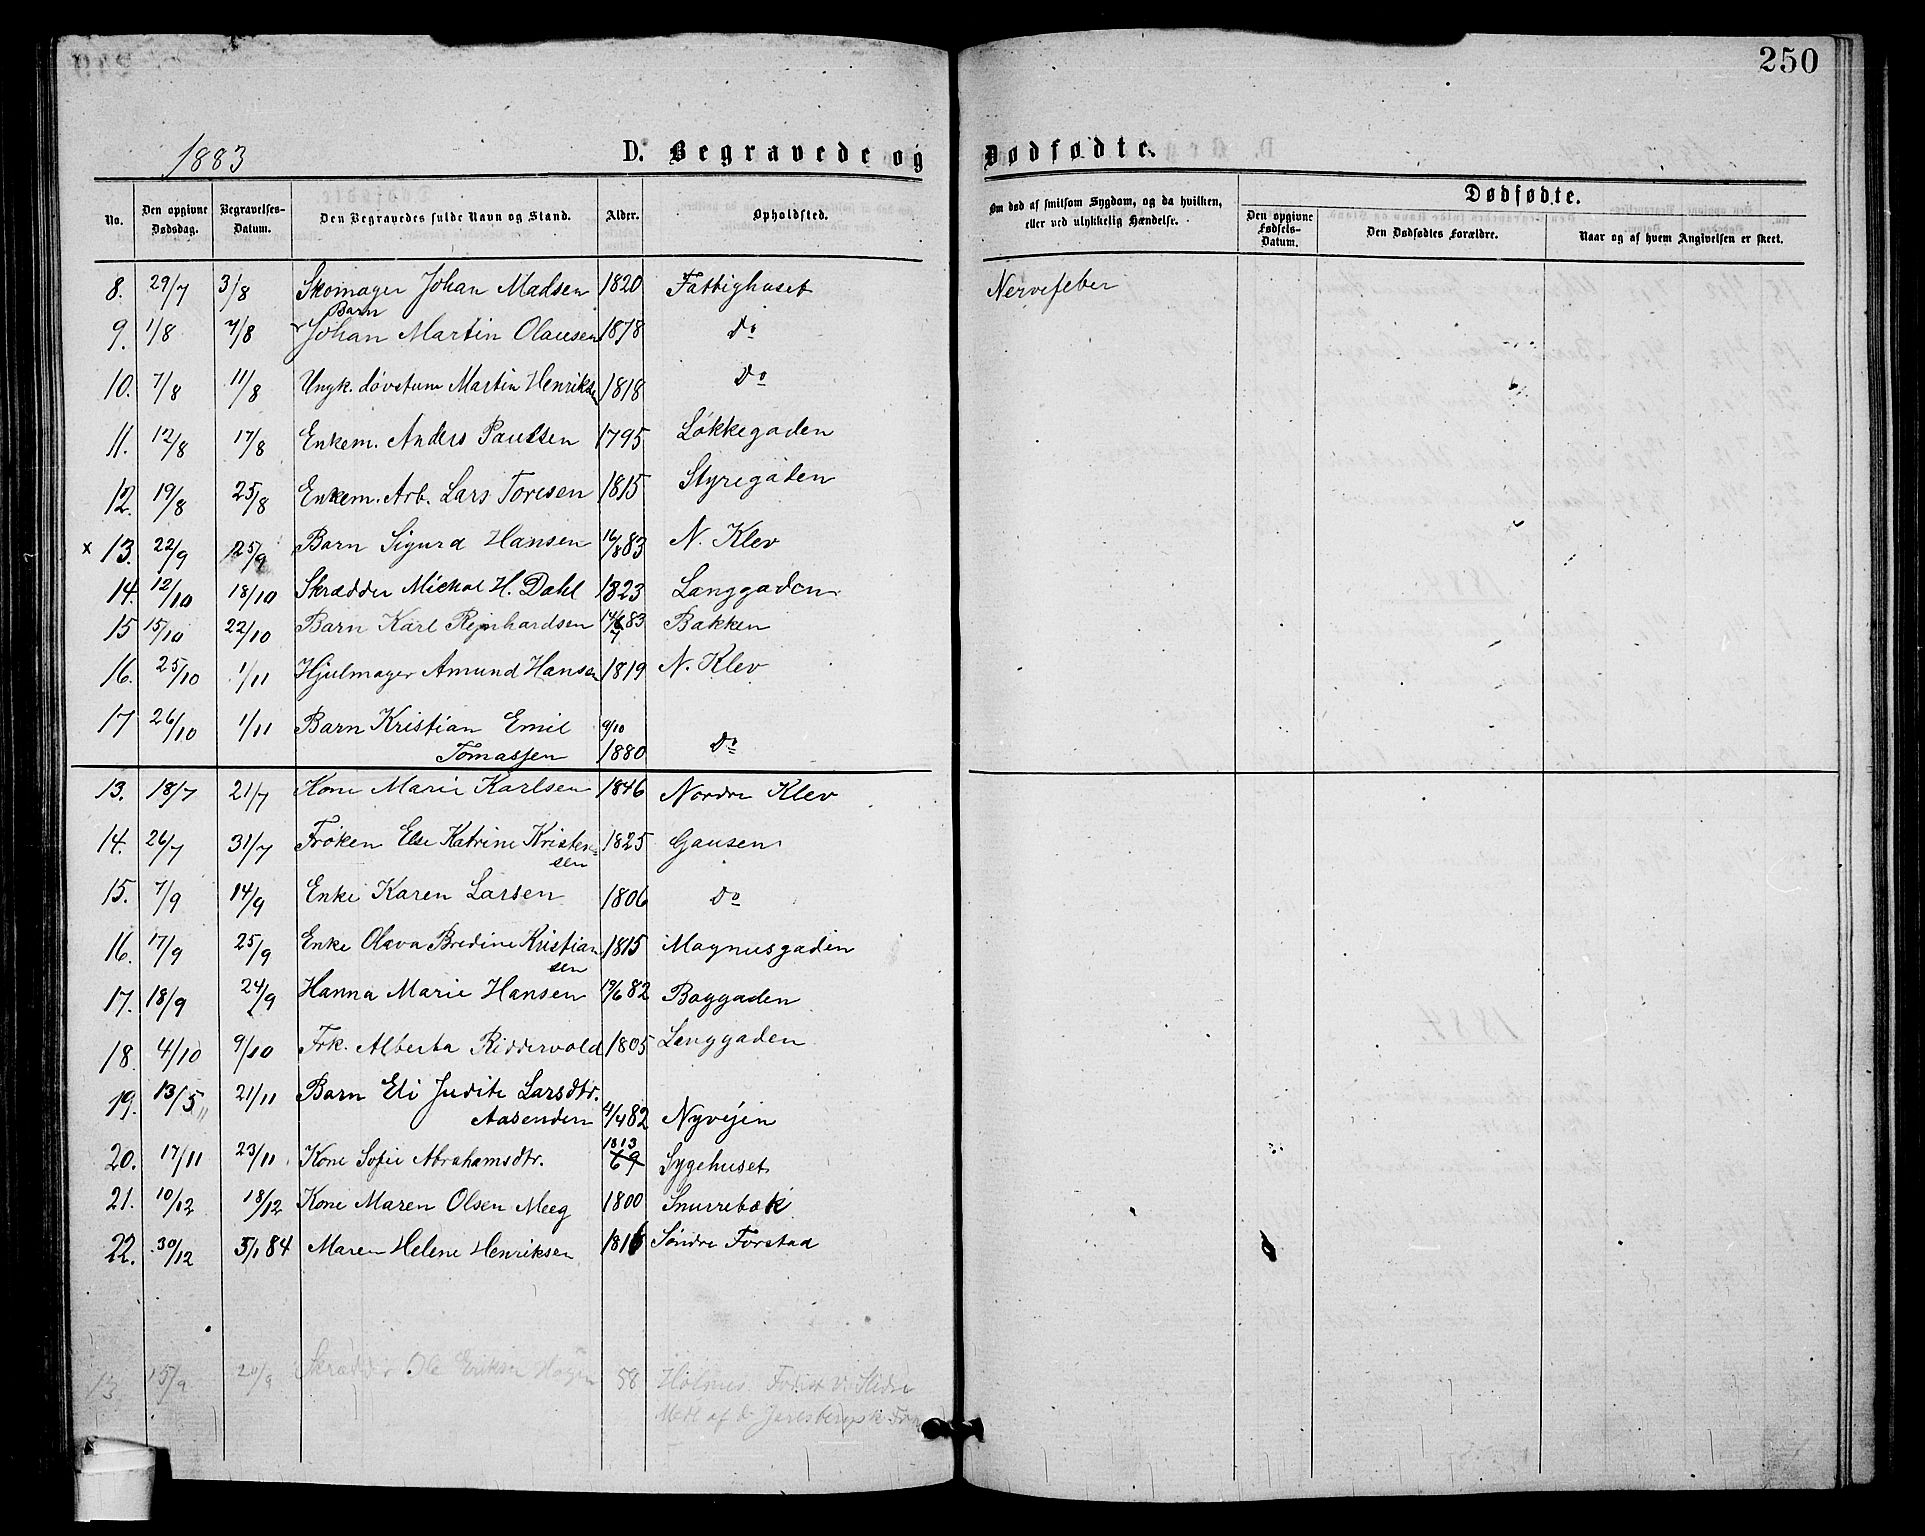 250
1883
D. Begravede og Dødfødte.
No. Den opgivne Dødsdag. Begravelses-Datum. Den Begravedes fulde Navn og Stand. Alder. Opholdsted. Om død af smitsom Sygdom, og da hvilken, eller ved ulykkelig Hændelse. Dødfødte.
Den opgivne Fødsels-Datum. Den Dødfødtes Forældre. Naar og af hvem Angivelsen er skeet.
8. 29/7 3/8 Skomager Johan Madsen 1820 Fattighuset Nervefeber
Barn
9. 1/8 7/8 Johan Martin Olausen 1878 Do
10. 7/8 11/8 Ungk. døvstum Martin Henriksen 1818 Do
11. 12/8 17/8 Enkem. Anders Paulsen 1795 Løkkegaden
12. 19/8 25/8 Enkem. Arb. Lars Toresen 1815 Styregaden
x 13. 22/9 25/9 Barn Sigurd Hansen 16/8 83 N. Klev
14. 12/10 18/10 Skrædder Mickal H. Dahl 1823 Langgaden
15 15/10 22/10 Barn Karl Reinhardsen 83 Bakken
16. 25/10 1/11 Hjulmager Amund Hansen 1819 N. Klev
17 26/10 1/11 Barn Kristian Emil 9/10
Tomassen 1880 Do
13. 18/7 21/7 Kone Marie Karlsen 1846 Nordre Klev
14. 26/7 31/7 Frøken Else Katrine Kristen= 1825 Gausen
sen
15. 7/9 14/9 Enke Karen Larsen 1806 Do
16. 17/9 25/9 Enke Olava Bredine Kristian 1815 Magnusgaden
sen
17. 18/9 24/9 Hanna Marie Hansen 82 Baggaden
18. 4/10 9/10 Frk. Alberta Riddervold 1805 Langgaden
19. 13/5 21/11 Barn Eli Judite Larsdtr.
Aasenden 4/4 82 Nyvejen
1813
20. 17/11 23/11 Kone Sofie Abrahamsdtr. 69 Sygehuset
21. 10/12 18/12 Kone Maren Olsen Meeg 1800 Snurrebæk
22. 30/12 5/1 84 Maren Helene Henriksen 1816 Søndre Forstad
13 15/9 20/9 Skrædder Ole Eriksen Hagen 58 Holmes Slidre
Medl af Jarlsbergsk